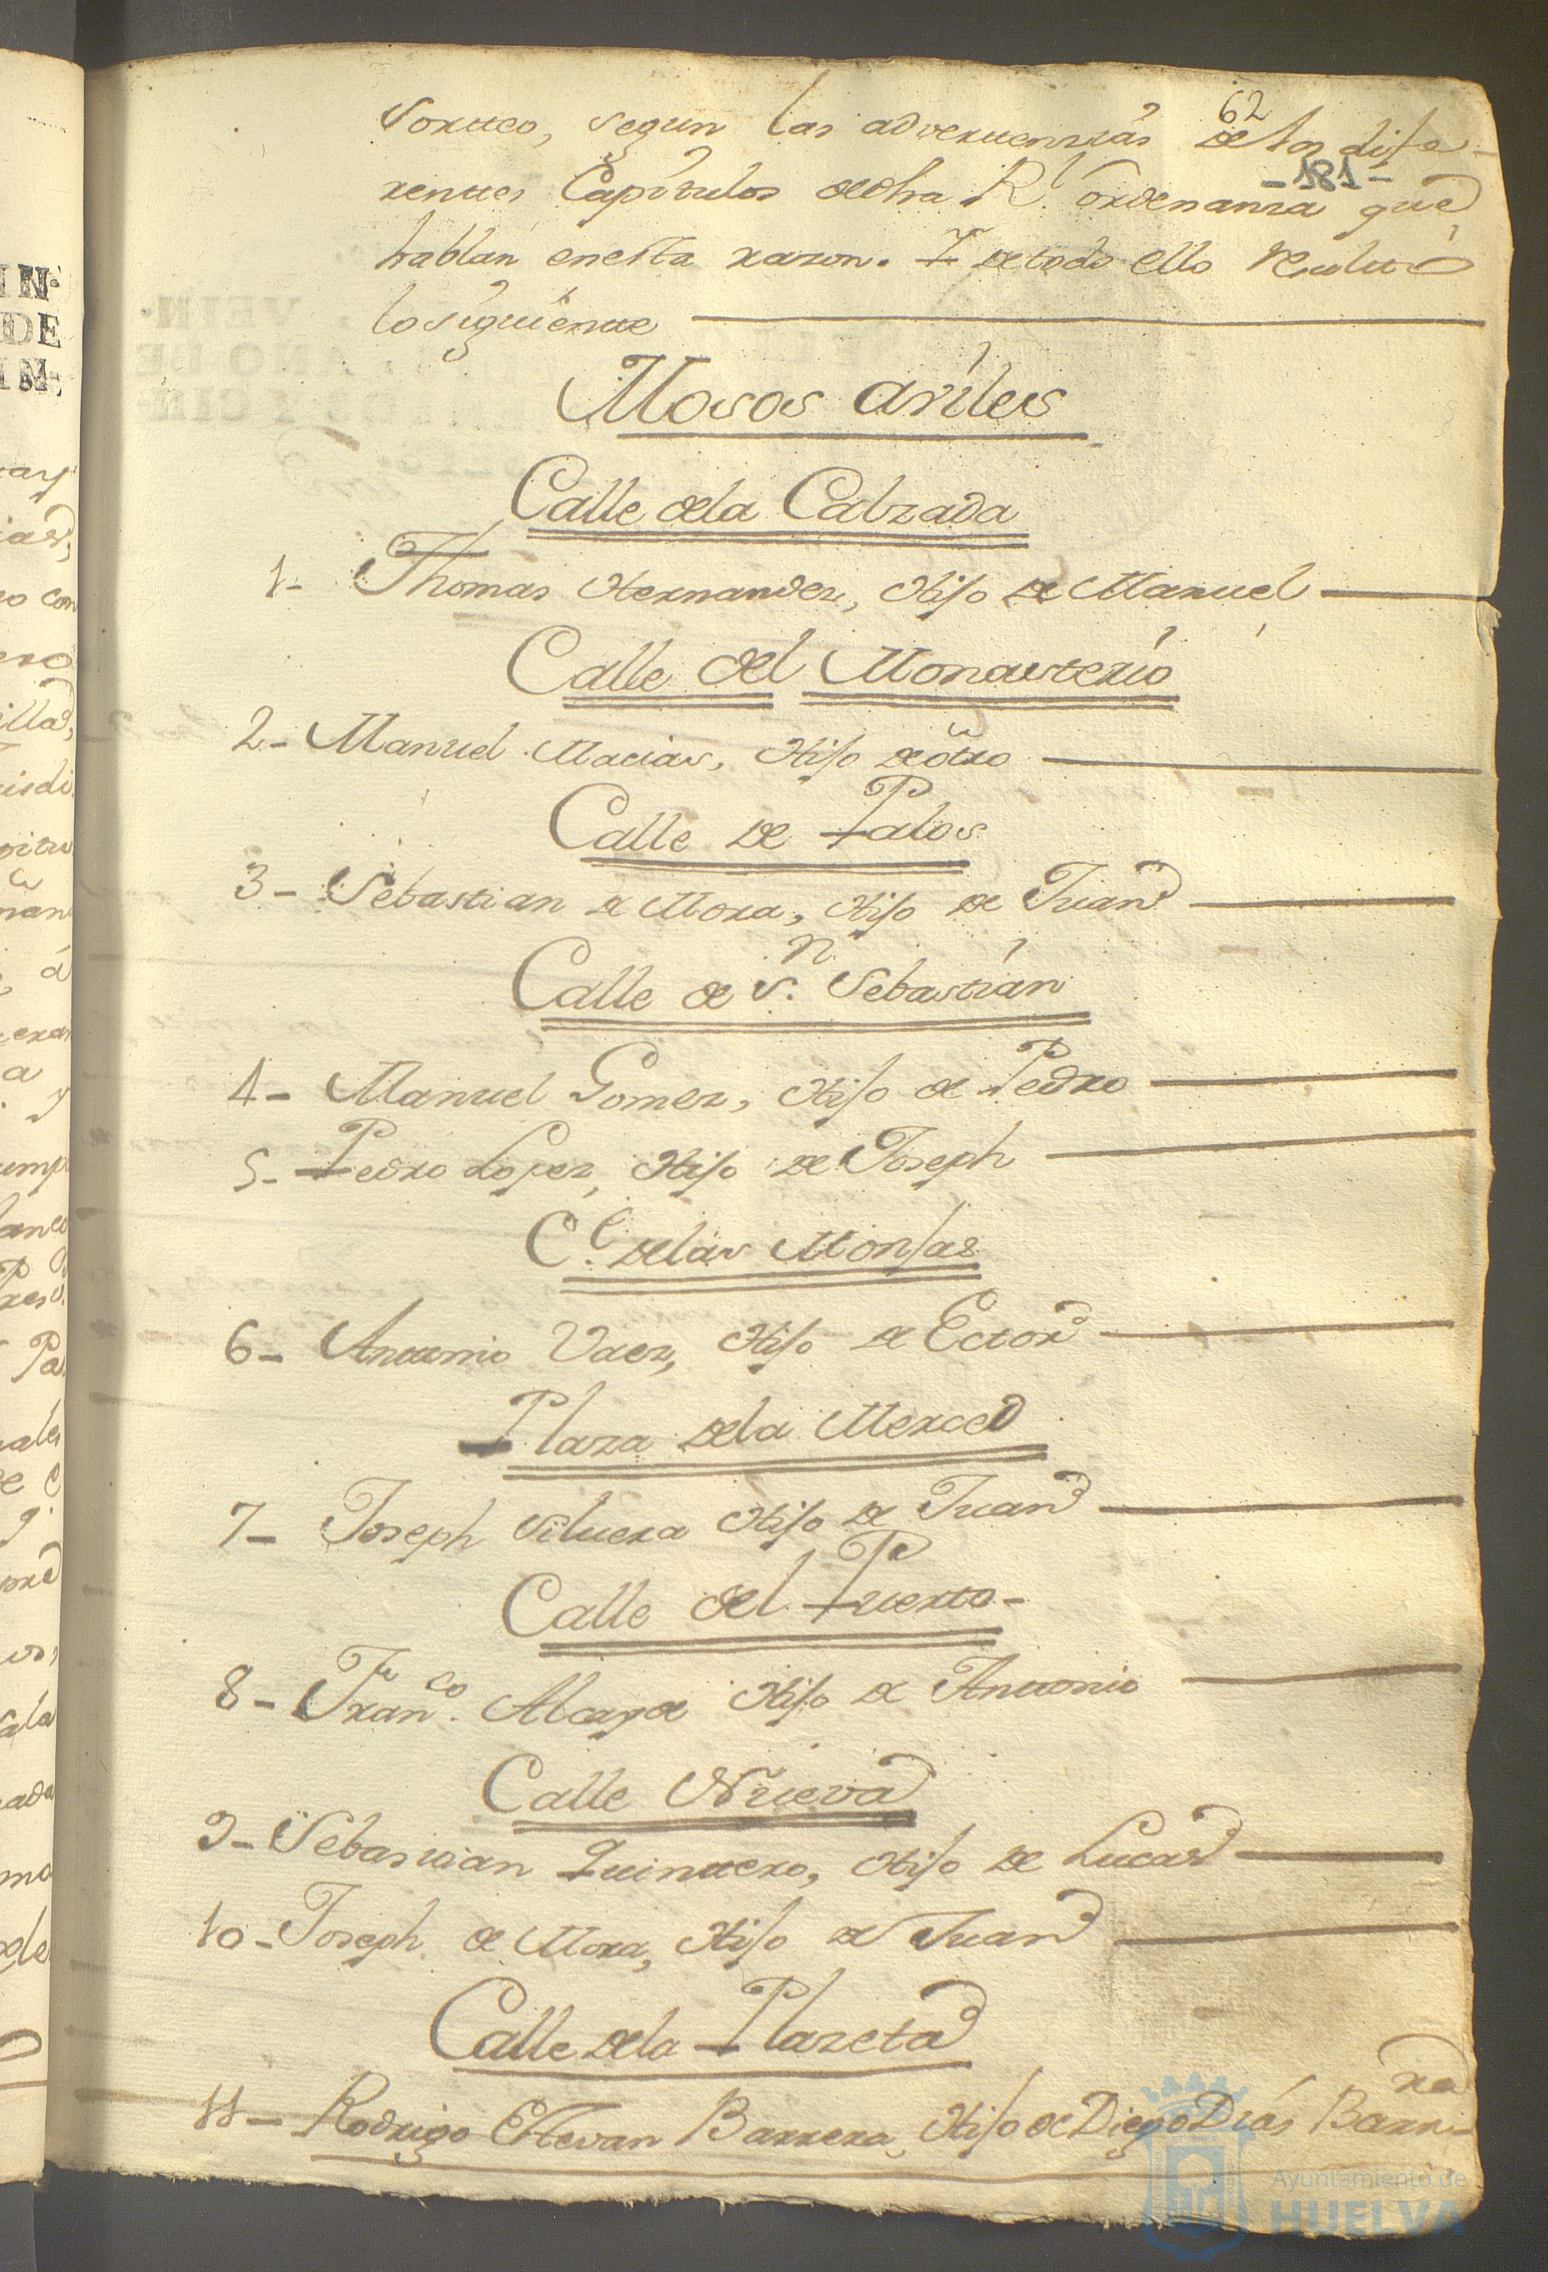 62
Sorteo, segun las advertenzias de los dife-
-181-
rentes Capitulos de dha Rl. ordenanza que
hablan en esta razon. Y de todo ello resultó
lo siguiente
Mosos aviles
Calle dela Calzada
1- Thomas Hernandez, Hijo de Manuel
Calle del Monasterio
2- Manuel Macias, Hijo de otro
Calle de Palos
3- Sebastian de Mora, Hijo de Juan
Calle de Sn. Sebastián
4- Manuel Gomez, Hijo de Pedro
5- Pedro Lopez, Hijo de Joseph
Ce. delas Monjas
6- Antonio Vaez, Hijo de Ector
Plaza dela Merced
7- Joseph Silvera Hijo de Juan
Calle del Puerto-
8- Franco. Alcayde Hijo de Antonio
Calle Nueva
9- Sebastian Quintero, Hijo de Lucas
10- Joseph de Mora, Hijo de Juan
Calle dela Plazeta
11- Rodrigo Estevan Barrera, Hijo de Diego Diás Barre-
ra
Ayuntamiento de
HUELVA